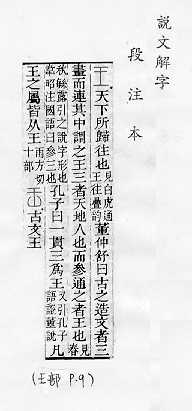 說文解字
段注本
王天下所歸往也見白虎通王往疊韵董仲舒曰古之造文者三
畫而連其中謂之王三者天地人也而參通之者王也見春
秋緐露引之說字形也韋昭注國語曰參三也孔子曰一貫三爲王又引孔子語證董說凡
王之屬皆从王雨方切十部古文王
(王部 P.9)